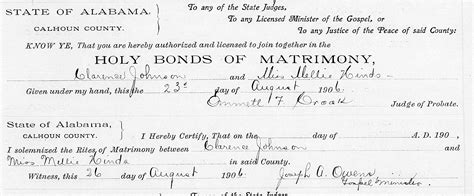 STATE OF ALABAMA, To any of the State Judges,
CALHOUN COUNTY. To any Licensed Minister of the Gospel, or
to any Justice of the Peace of said County:
KNOW YE, That you are hereby authorized and licensed to join together in the
HOLY BONDS OF MATRIMONY,
Clarence Johnson and Miss Mellie Hinds
Given under my hand, this the 23d day of August 1906
Emmett F Crook Judge of Probate.
State of Alabama,
CALHOUN COUNTY.
I Hereby Certify, That on the day of A.D. 190
I solemnized the Rites of Matrimony between Clarence Johnson and
Miss Mellie Hinds in said County.
Witness, this 26 day of August 1906 Joseph A. Owens
Gospel Minister
To any of the State Judges,